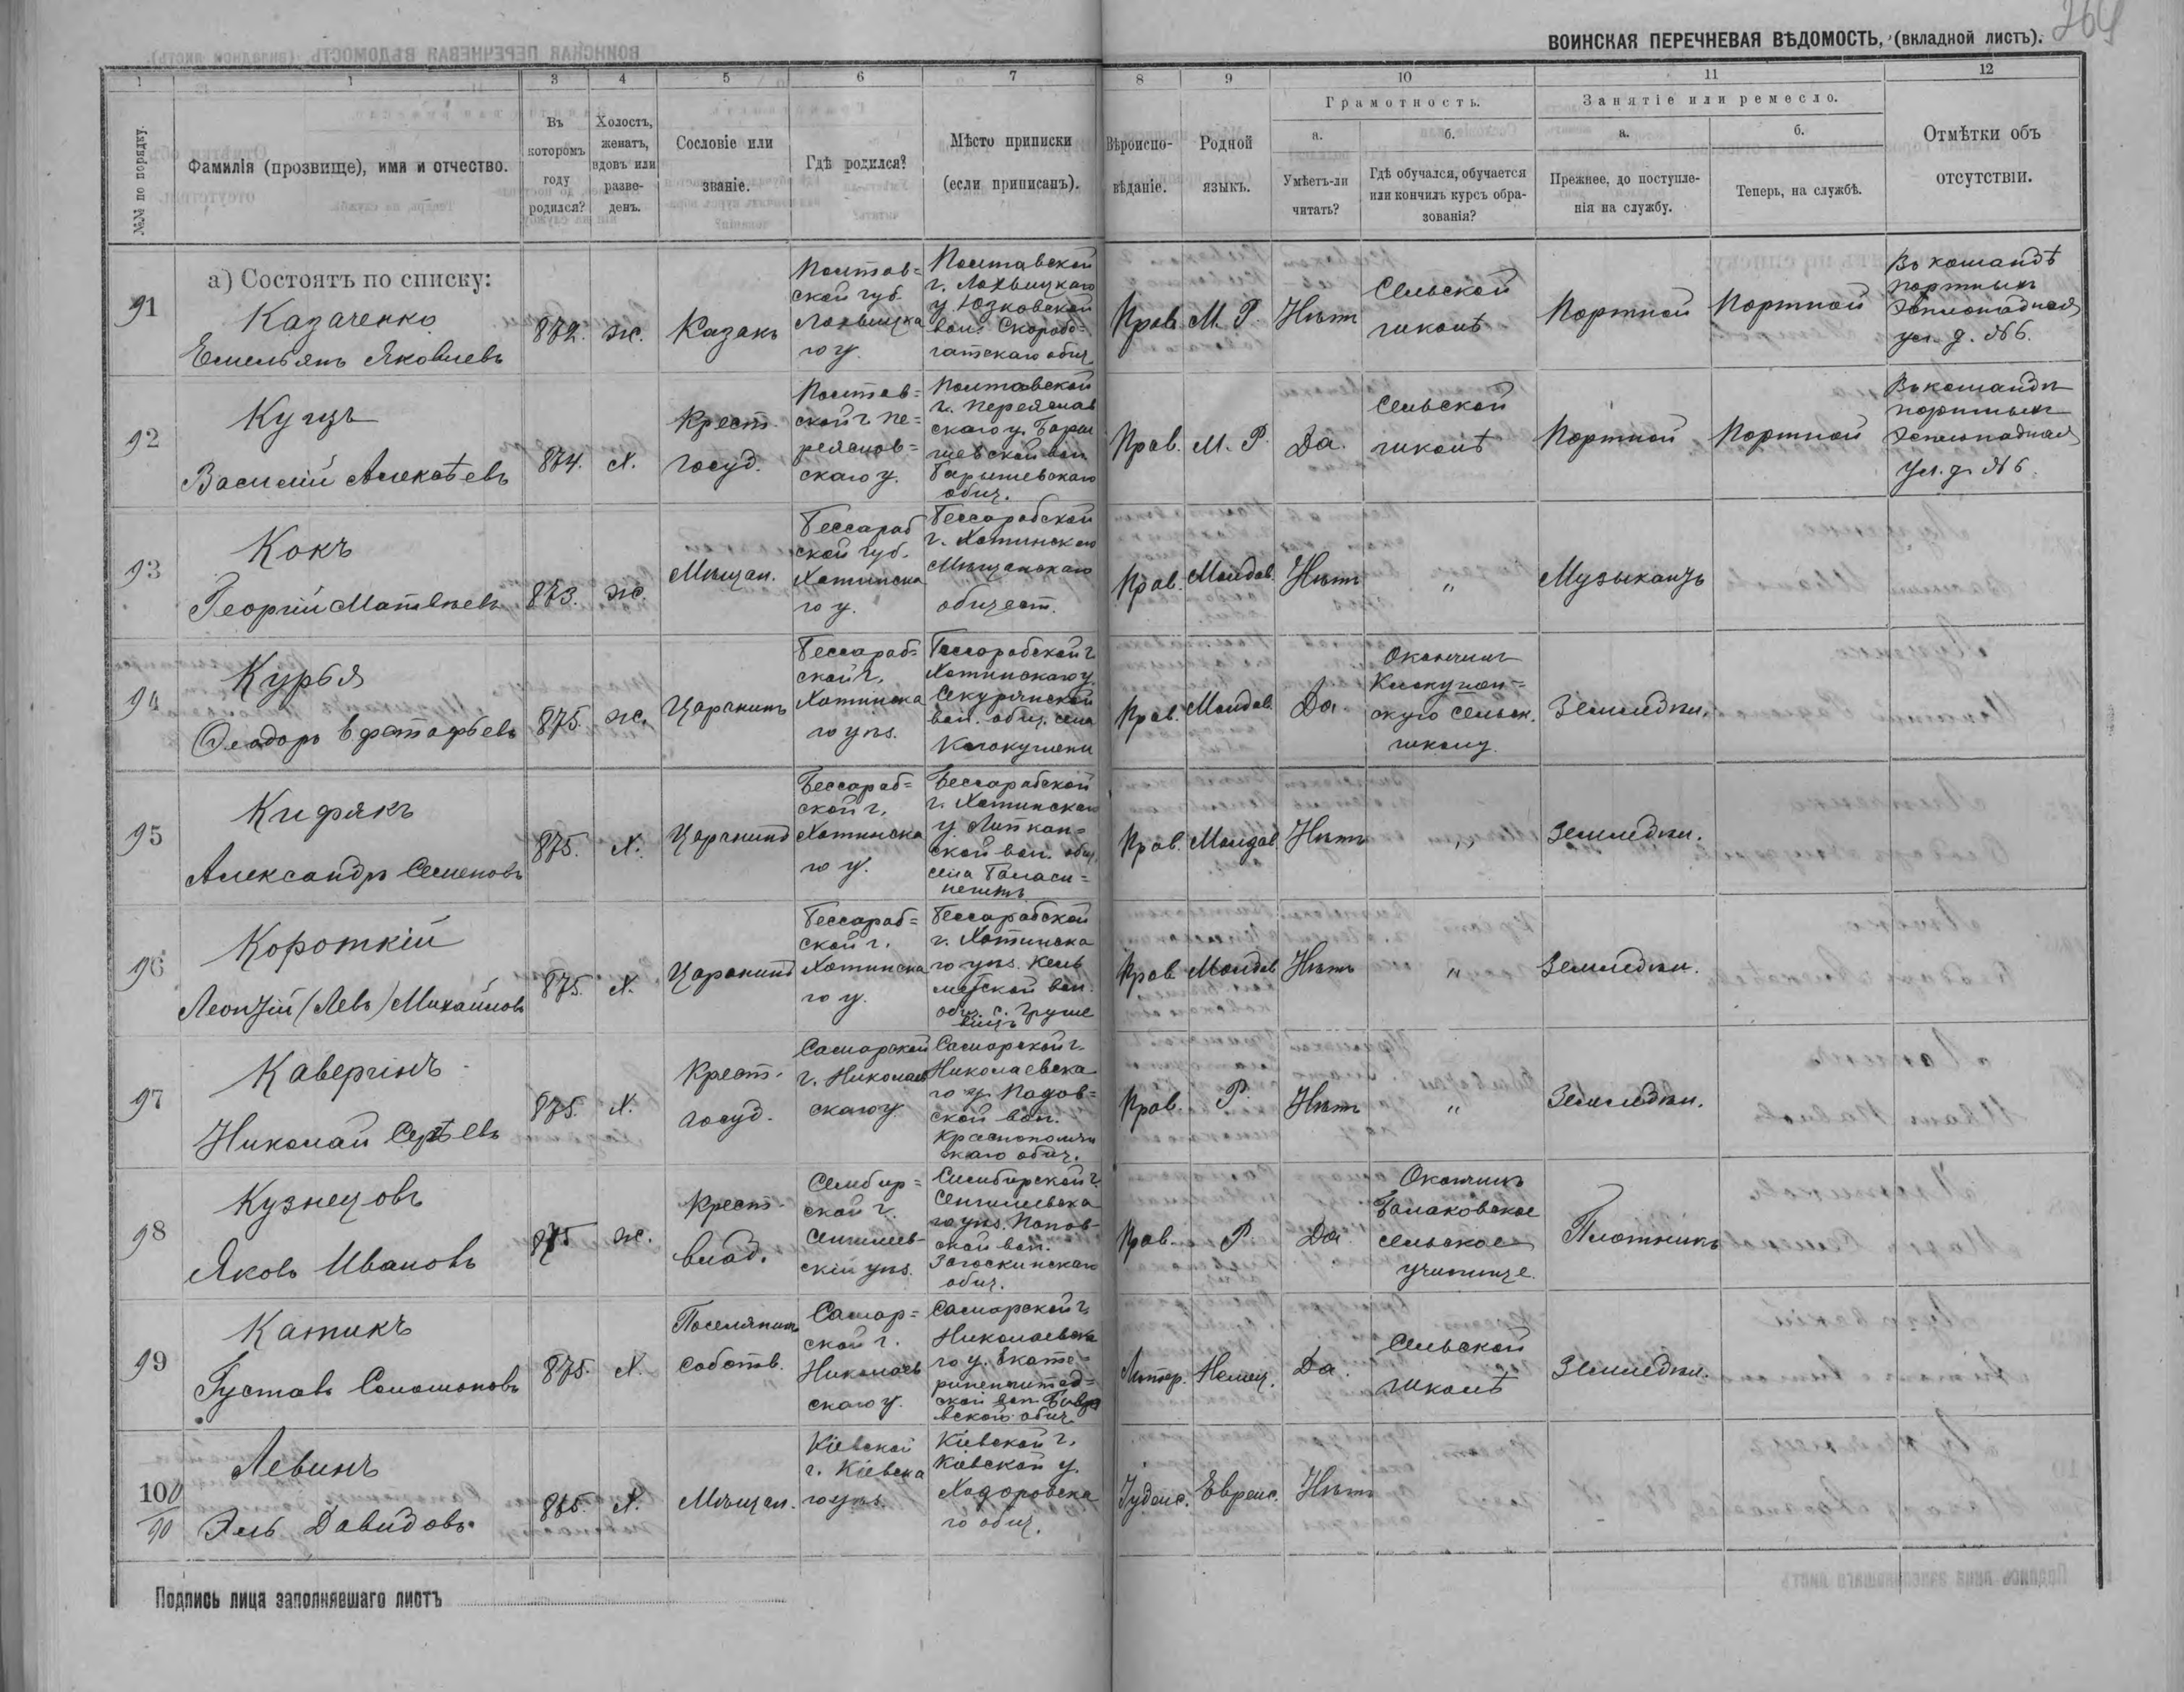 264
ВОИНСКАЯ ПЕРЕЧНЕВАЯ ВѢДОМОСТЬ, (вкладной листъ).
1 1 3 4 5 6 7 8 9 10 11 12
№№ по порядку.
Фамилія (прозвище), имя и отчество.
Въ которомъ году родился?
Холостъ, женатъ, вдовъ или разве-
денъ.
Сословіе или
званіе.
Гдѣ родился?
Мѣсто приписки
(если приписанъ).
Вѣроиспо-
вѣданіе.
Родной
языкъ.
Грамотность.
а.
Умѣетъ-ли
читать?
б.
Гдѣ обучался, обучается
или кончилъ курсъ обра-
зованія?
Занятіе или ремесло.
а.
Прежнее, до поступле-
нія на службу.
б.
Теперь, на службѣ.
Отмѣтки объ
отсутствіи.
а) Состоятъ по списку:
91
Казаченко
Емельянъ Яковлевъ
872.
ж.
Казакъ
Полтав=
ской губ.
Лохвицка
го у.
Полтавской
г. Лохвицкаго
у. Юзковской
вол. Скоробо=
гатскаго общ.
Прав.
М. Р.
Нѣтъ
Сельской
школѣ
Портной
Портной
Въ командѣ
портныхъ
ул. д. №6.
92
Куцъ
Василій Алексѣевъ
874.
х.
Крест.
госуд.
Полтав=
ской г. Пе=
реяслав=
скаго у.
Полтавской
г. Переяслав
скаго у. Бары
шевской вол.
Барышевскаго
общ.
Прав.
М. Р.
Да.
Сельской
школѣ
Портной
Портной
Въ командѣ
портныхъ
Ул. д. №6
93
Кокъ
Георгій Матвѣевъ
873.
ж.
Мѣщан.
Бессараб
ской губ.
Хотинска
го у.
Бессарабской
г. Хотинскаго
Мѣщанскаго
общест.
Прав.
Молдав.
Нѣтъ
"
Музыкантъ
94
Курья
Феодоръ Евстафьевъ
875.
ж.
Царанинъ
Бессараб=
ской г.
Хотинска
го уѣз.
Бессарабской г.
Хотинскаго у.
Секурянской
вол. общ. села
Клокушени
Прав.
Молдав.
Да
Окончилъ
Клокушен=
скую сельск.
школу.
Земледѣл.
95
Кифякъ
Александръ Семеновъ
875.
х.
Царанинъ
Бессараб=
ской г.
Хотинска
го у.
Бессарабской
г. Хотинскаго
у. Липкан=
ской вол. общ.
села
Прав.
Молдав.
Нѣтъ
"
Земледѣл.
96
Короткій
Леонтій (Левъ) Михайловъ
875.
х.
Царанинъ
Бессараб=
ской г.
Хотинска
го у.
Бессарабской
г. Хотинска
го уѣз. Кель
менской вол.
общ. с. Груше
вицъ
Прав
Молдав
Нѣтъ
"
Земледѣл.
97
Каверинъ
Николай Сергѣевъ
875.
х.
Крест.
госуд.
Самарской
г. Николаев
скаго у.
Самарской г.
Николаевска
го у.
ской вол.
скаго общ.
Прав.
Р.
Нѣтъ
"
Земледѣл.
98
Кузнецовъ
Яковъ Ивановъ
875
ж.
Крест.
влад.
Симбир=
ской г.
Сенгилеев-
скій уѣз.
Симбирской г.
Сенгилеевска
го уѣз. Попов-
ской вол.
Загоскинскаго
общ.
Прав.
Р.
Да.
Окончилъ
Балаковское
сельское
училище.
Плотникъ
99
Катикъ
Густавъ Соломоновъ
875.
х.
Поселянинъ
собств.
Самар=
ской г.
Николаев
скаго у.
Самарской г.
Николаевска
го у. Екате=
риненштад=
ской вол.
общ.
Лютер.
Немец.
Да.
Сельской
школѣ
Земледѣл.
100/10
Левинъ
Эль Давидовъ.
865.
х.
Мѣщан.
Кіевской
г. Кіевска
го уѣз.
Кіевской г.
Кіевской у.
Ходоровска
го общ.
Іудейс.
Еврейс.
Нѣтъ
Подпись лица заполнявшаго листъ